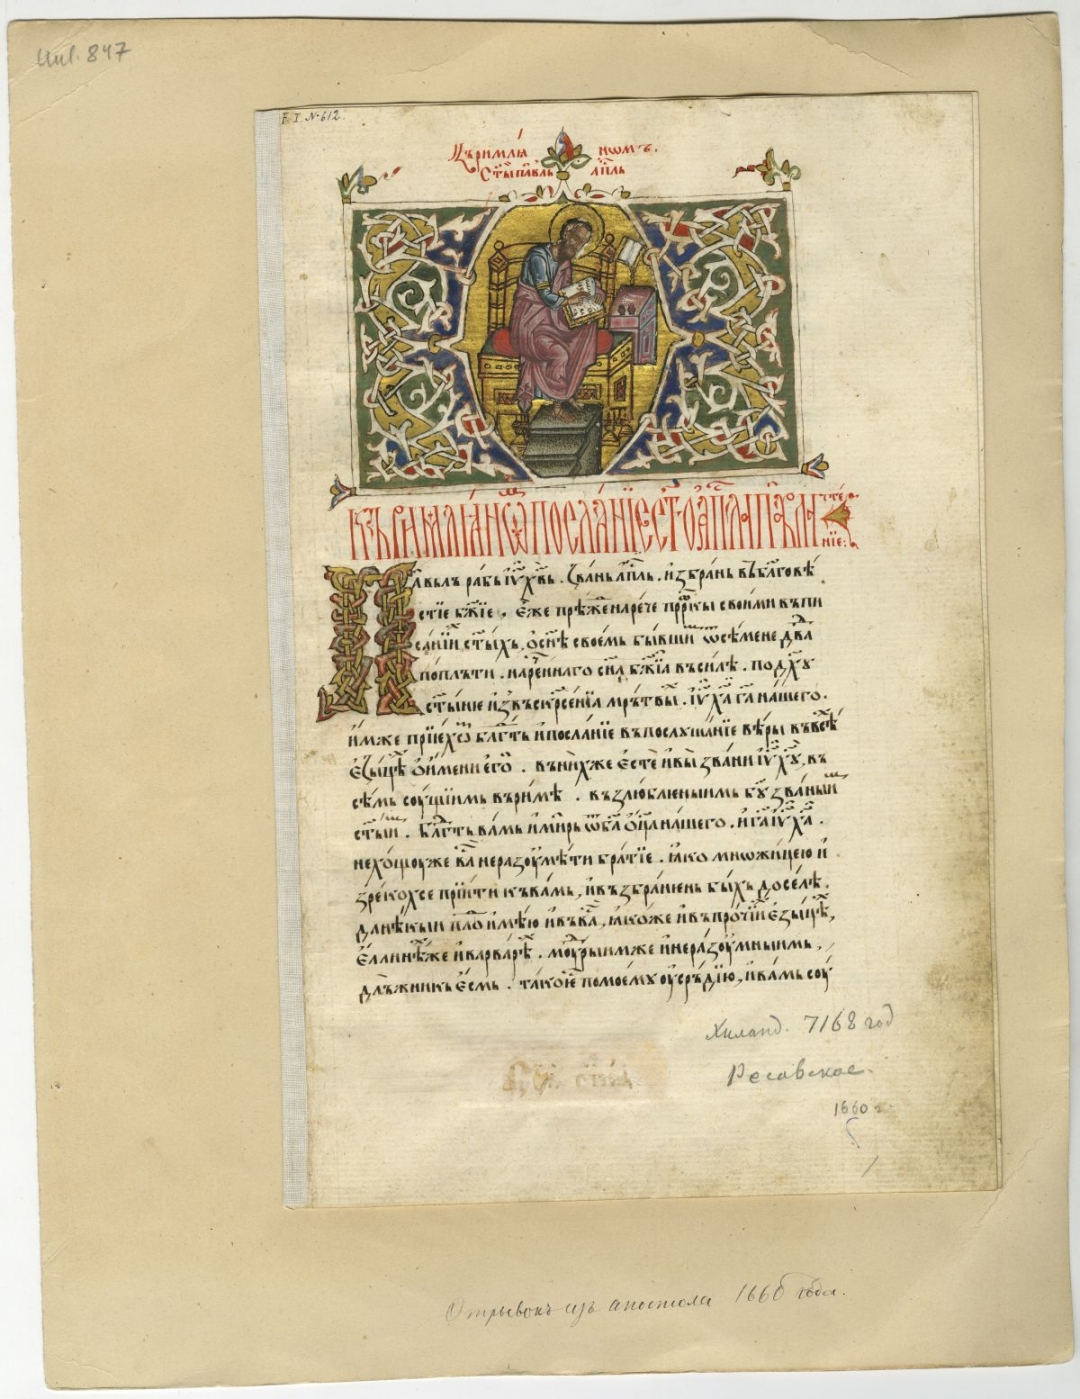 Инв. 847
F. I. № 612.
Къ римлꙗ нѡмъ.
Ст҃ы павль ап҃ль
Къ римлꙗнѡⷨ посланїе ст҃го ап҃ла павла чте
нїе:
Павьль рабь іу҃ х҃вь. званъ ап҃ль. избрань въ бл҃говѣ
стїе бж҃їе. еже прѣжⷣе нарече прⷪ҇рѡкы своими въ пи
санїи ст҃ыхъ, о сн҃ѣ своемь бывши ѿ семене дв҃да
по пльти. нареⷱ҇ннаго сн҃а бж҃їа въ силѣ. по дх҃у
ст҃ыніе из въскр҃сенїа мрьтвыⷯ. іу҃ х҃а г҃а нашего.
имже прїехѡⷨ бл҃гⷣть и посланїе въ послушанїе вѣры въ всѣⷯ
езыцѣⷯ о имени его. въ нихже есте и вы звани іу҃ х҃у, въ
сѣмь соущїимь въ римѣ. възлюбленыимь б҃у званыиⷨ
ст҃ыиⷨ. бл҃гⷣть вамь и мирь ѿ б҃а ѡц҃а нашего. и г҃а іу҃ х҃а.
не хощоу же ваⷭ неразоумѣти братїе. ꙗко мнѡжицею и
зрекохсе прїити къ вамь, и възбранень быхь доселѣ.
да нѣкыи плѡⷣ имѣю и въ ваⷭ, ꙗкоже и въ прочїиⷯ езыцѣⷯ,
еллинѡⷨже и варварѡⷨ. моудрыимже и неразоумныимь,
дльжникь есмь. тако іеⷭ по моемꙋ оусрьдїю, и вамь соу
Хиланд. 7168 год
Ресавское.
1660 г.
Отрывокъ изъ апостола 1660 года.